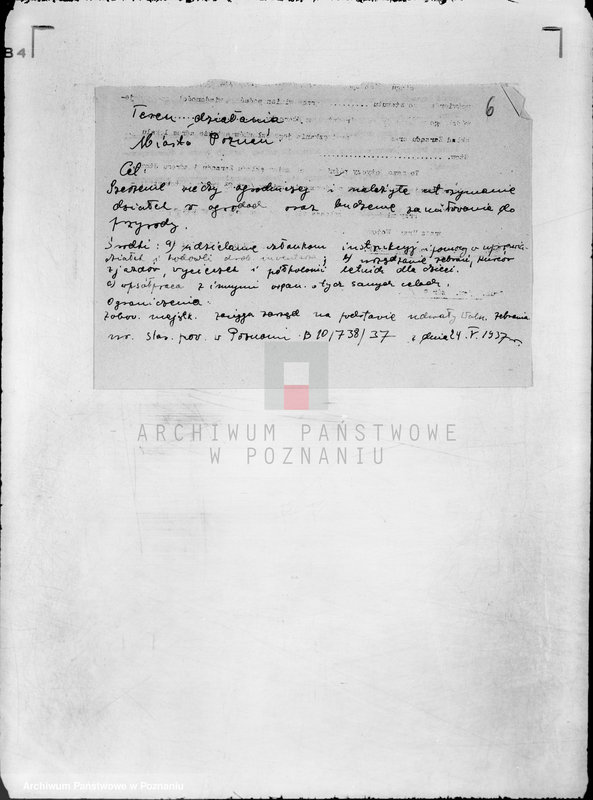 B4
6
Teren działania
Miasto Poznań
Cel:
Szerzenie wiedzy ogrodniczej i należyte utrzymanie
działek w ogrodach oraz budzenie zamiłowania do
przyrody.
Środki: a) udzielanie członkom instrukcyj i pomocy w uprawie
działek i hodowli drob. inwentarza; b) urządzanie zebrań, kursów
zjazdów, wycieczek i półkolonii letnich dla dzieci.
c) współpraca z innymi organ. o tych samych celach.
Ograniczenia
zobow. majątk. zaciąga zarząd na podstawie uchwały Waln. zebrania
nr. star. pow. w Poznaniu B 10/738/37 z dnia 24 V. 1937 r.
ARCHIWUM PAŃSTWOWE
W POZNANIU
Archiwum Państwowe w Poznaniu